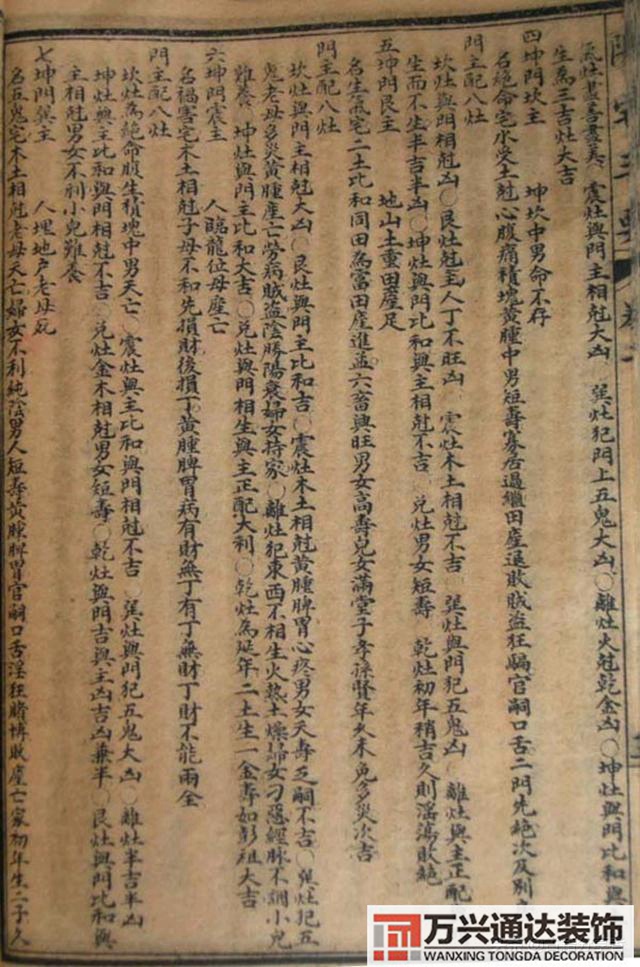 氣灶盡善盡美　震灶與門主相尅大凶○巽灶犯門上五鬼大凶○離灶火尅乾金凶○坤灶與門比和與
生為三吉灶大吉
四坤門坎主　　坤坎中男命不存
名絕命宅水受土尅心腹痛積塊黃腫中男短壽寡居過繼田產退敗賊盜狂騙官嗣口舌二門先絕次及別
門主配八灶
坎灶與門主相尅凶○艮灶尅主人丁不旺凶○震灶木土相尅不吉○巽灶與門犯五鬼凶○離灶與主正配
生而不生半吉半凶○坤灶與門比和與主相尅不吉○兌灶男女短壽　乾灶初年稍吉久則淫蕩敗絕
五坤門艮主　　地山土重田產足
名生氣宅二土比和同田為富田產進益六畜興旺男女高壽兒女滿堂子孝孫賢年久未免多災次吉
門主配八灶
坎灶與門主相尅大凶○艮灶與門主比和吉○震灶木土相尅黃腫脾胃心疼男女夭壽乏嗣不吉○巽灶犯五
鬼老母多災黃腫產亡勞病賊盜陰勝陽衰婦女持家○離灶犯東西不相生火熱土燥婦女刁惡經脉不調小兒
難養　坤灶與門主比和大吉○兌灶與門相生與主正配大利○乾灶為延年二土生一金壽如彭祖大吉
六坤門震主　　人臨龍位母產亡
名禍害宅木土相尅子母不和先損財後損丁黃腫脾胃病有財無丁有丁無財丁財不能兩全
門主配八灶
坎灶為絕命腹生積塊中男夭亡○震灶與主比和與門相尅不吉○巽灶與門犯五鬼大凶○離灶半吉半凶
坤灶與主比和與門相尅不吉○兌灶金木相尅男女短壽○乾灶與門吉與主凶吉凶兼半○艮灶與門比和與
主相尅男女不利小兒難養
七坤門巽主　　人埋地戶老母死
名五鬼宅木土相尅老母夭亡婦女不利純陰男人短壽黃腫脾胃官嗣口舌淫狂賭博敗產亡家初年生二子久
万兴通达装饰
WANXING TONGDA DECORATION